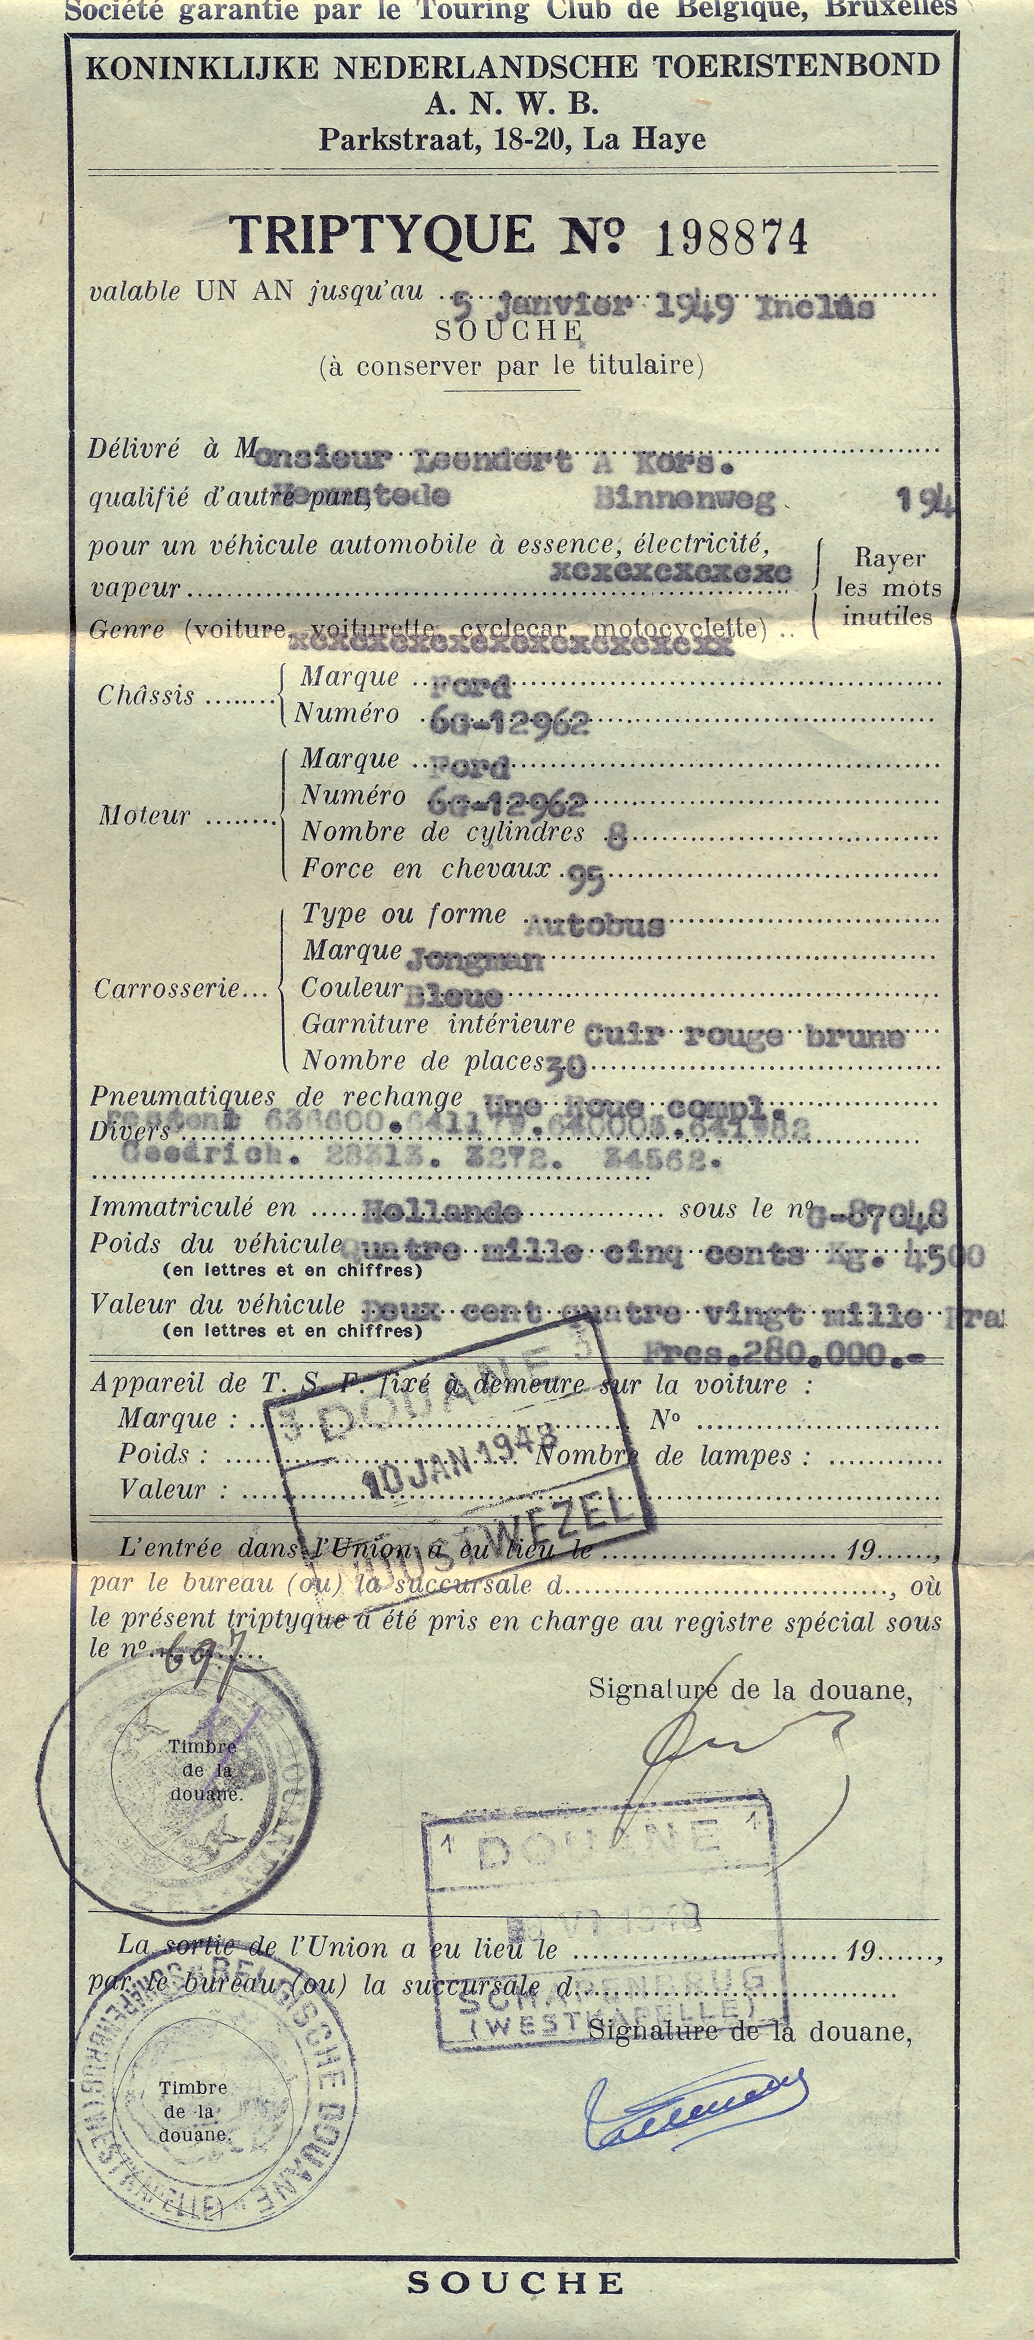 Société garantie par le Touring Club de Belgique, Bruxelles
KONINKLIJKE NEDERLANDSCHE TOERISTENBOND
A. N. W. B.
Parkstraat, 18-20, La Haye
TRIPTYQUE Nº 198874
valable UN AN jusqu'au 5 janvier 1949 Inclus
SOUCHE
(à conserver par le titulaire)
Délivré à Monsieur Leendert A Kors.
qualifié d'autre part, Heemstede Binnenweg 194
pour un véhicule automobile à essence, électricité,
vapeur xcxcxcxcxcxc
Rayer
les mots
inutiles
Genre (voiture, voiturette, cyclecar, motocyclette)
Châssis
Marque Ford
Numéro 6G-12962
Moteur
Marque Ford
Numéro 6G-12962
Nombre de cylindres 8
Force en chevaux 95
Carrosserie
Type ou forme Autobus
Marque Jongman
Couleur Bleue
Garniture intérieure Cuir rouge brune
Nombre de places 30
Pneumatiques de rechange Une Roue compl.
Divers 636600.641179.640003.641982
Goodrich. 28313. 3272. 34562.
Immatriculé en Hollande sous le nº G-87048
Poids du véhicule Quatre mille cinq cents Kg. 4500
(en lettres et en chiffres)
Valeur du véhicule Deux cent quatre vingt mille Fra
(en lettres et en chiffres)
Frcs.280.000.-
Appareil de T. S. F. fixé à demeure sur la voiture :
Marque : Nº
Poids : Nombre de lampes :
Valeur :
3 DOUANE 3
10 JAN 1948
WUUSTWEZEL
L'entrée dans l'Union a eu lieu le 19 ,
par le bureau (ou) la succursale d , où
le présent triptyque a été pris en charge au registre spécial sous
le nº 697
Signature de la douane,
Timbre
de la
douane.
1 DOUANE 1
VI 1948
SCHAPENBRUG
(WESTKAPELLE)
La sortie de l'Union a eu lieu le 19 ,
par le bureau (ou) la succursale d
Signature de la douane,
BELGISCHE DOUANE
SCHAPENBRUG (WESTKAPELLE)
Timbre
de la
douane.
SOUCHE